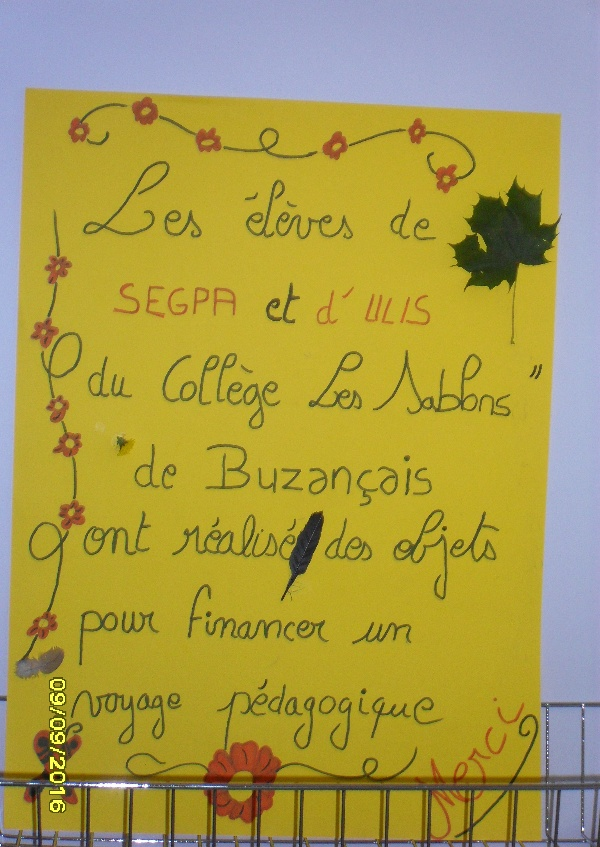 Les élèves de
SEGPA et d'ULIS
du Collège Les Sablons"
de Buzançais
ont réalisé des objets
pour financer un
voyage pédagogique
Merci
09/09/2016